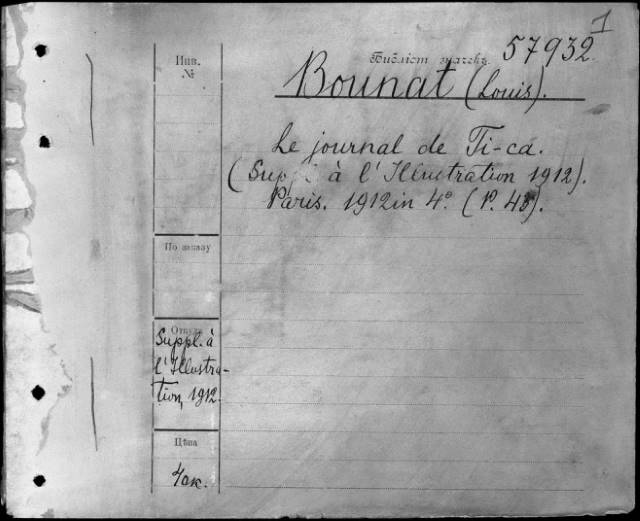 1
57932
Инв.
№
Библіот. значекъ
Bounat (Louis).
Le journal de Ti-ca.
(Suppl. à l'Illustration 1912).
Paris. 1912 in 4°. (P. 48).
По заказу
Откуда
Suppl. à
l'Illustra-
tion, 1912
Цѣна
40к.